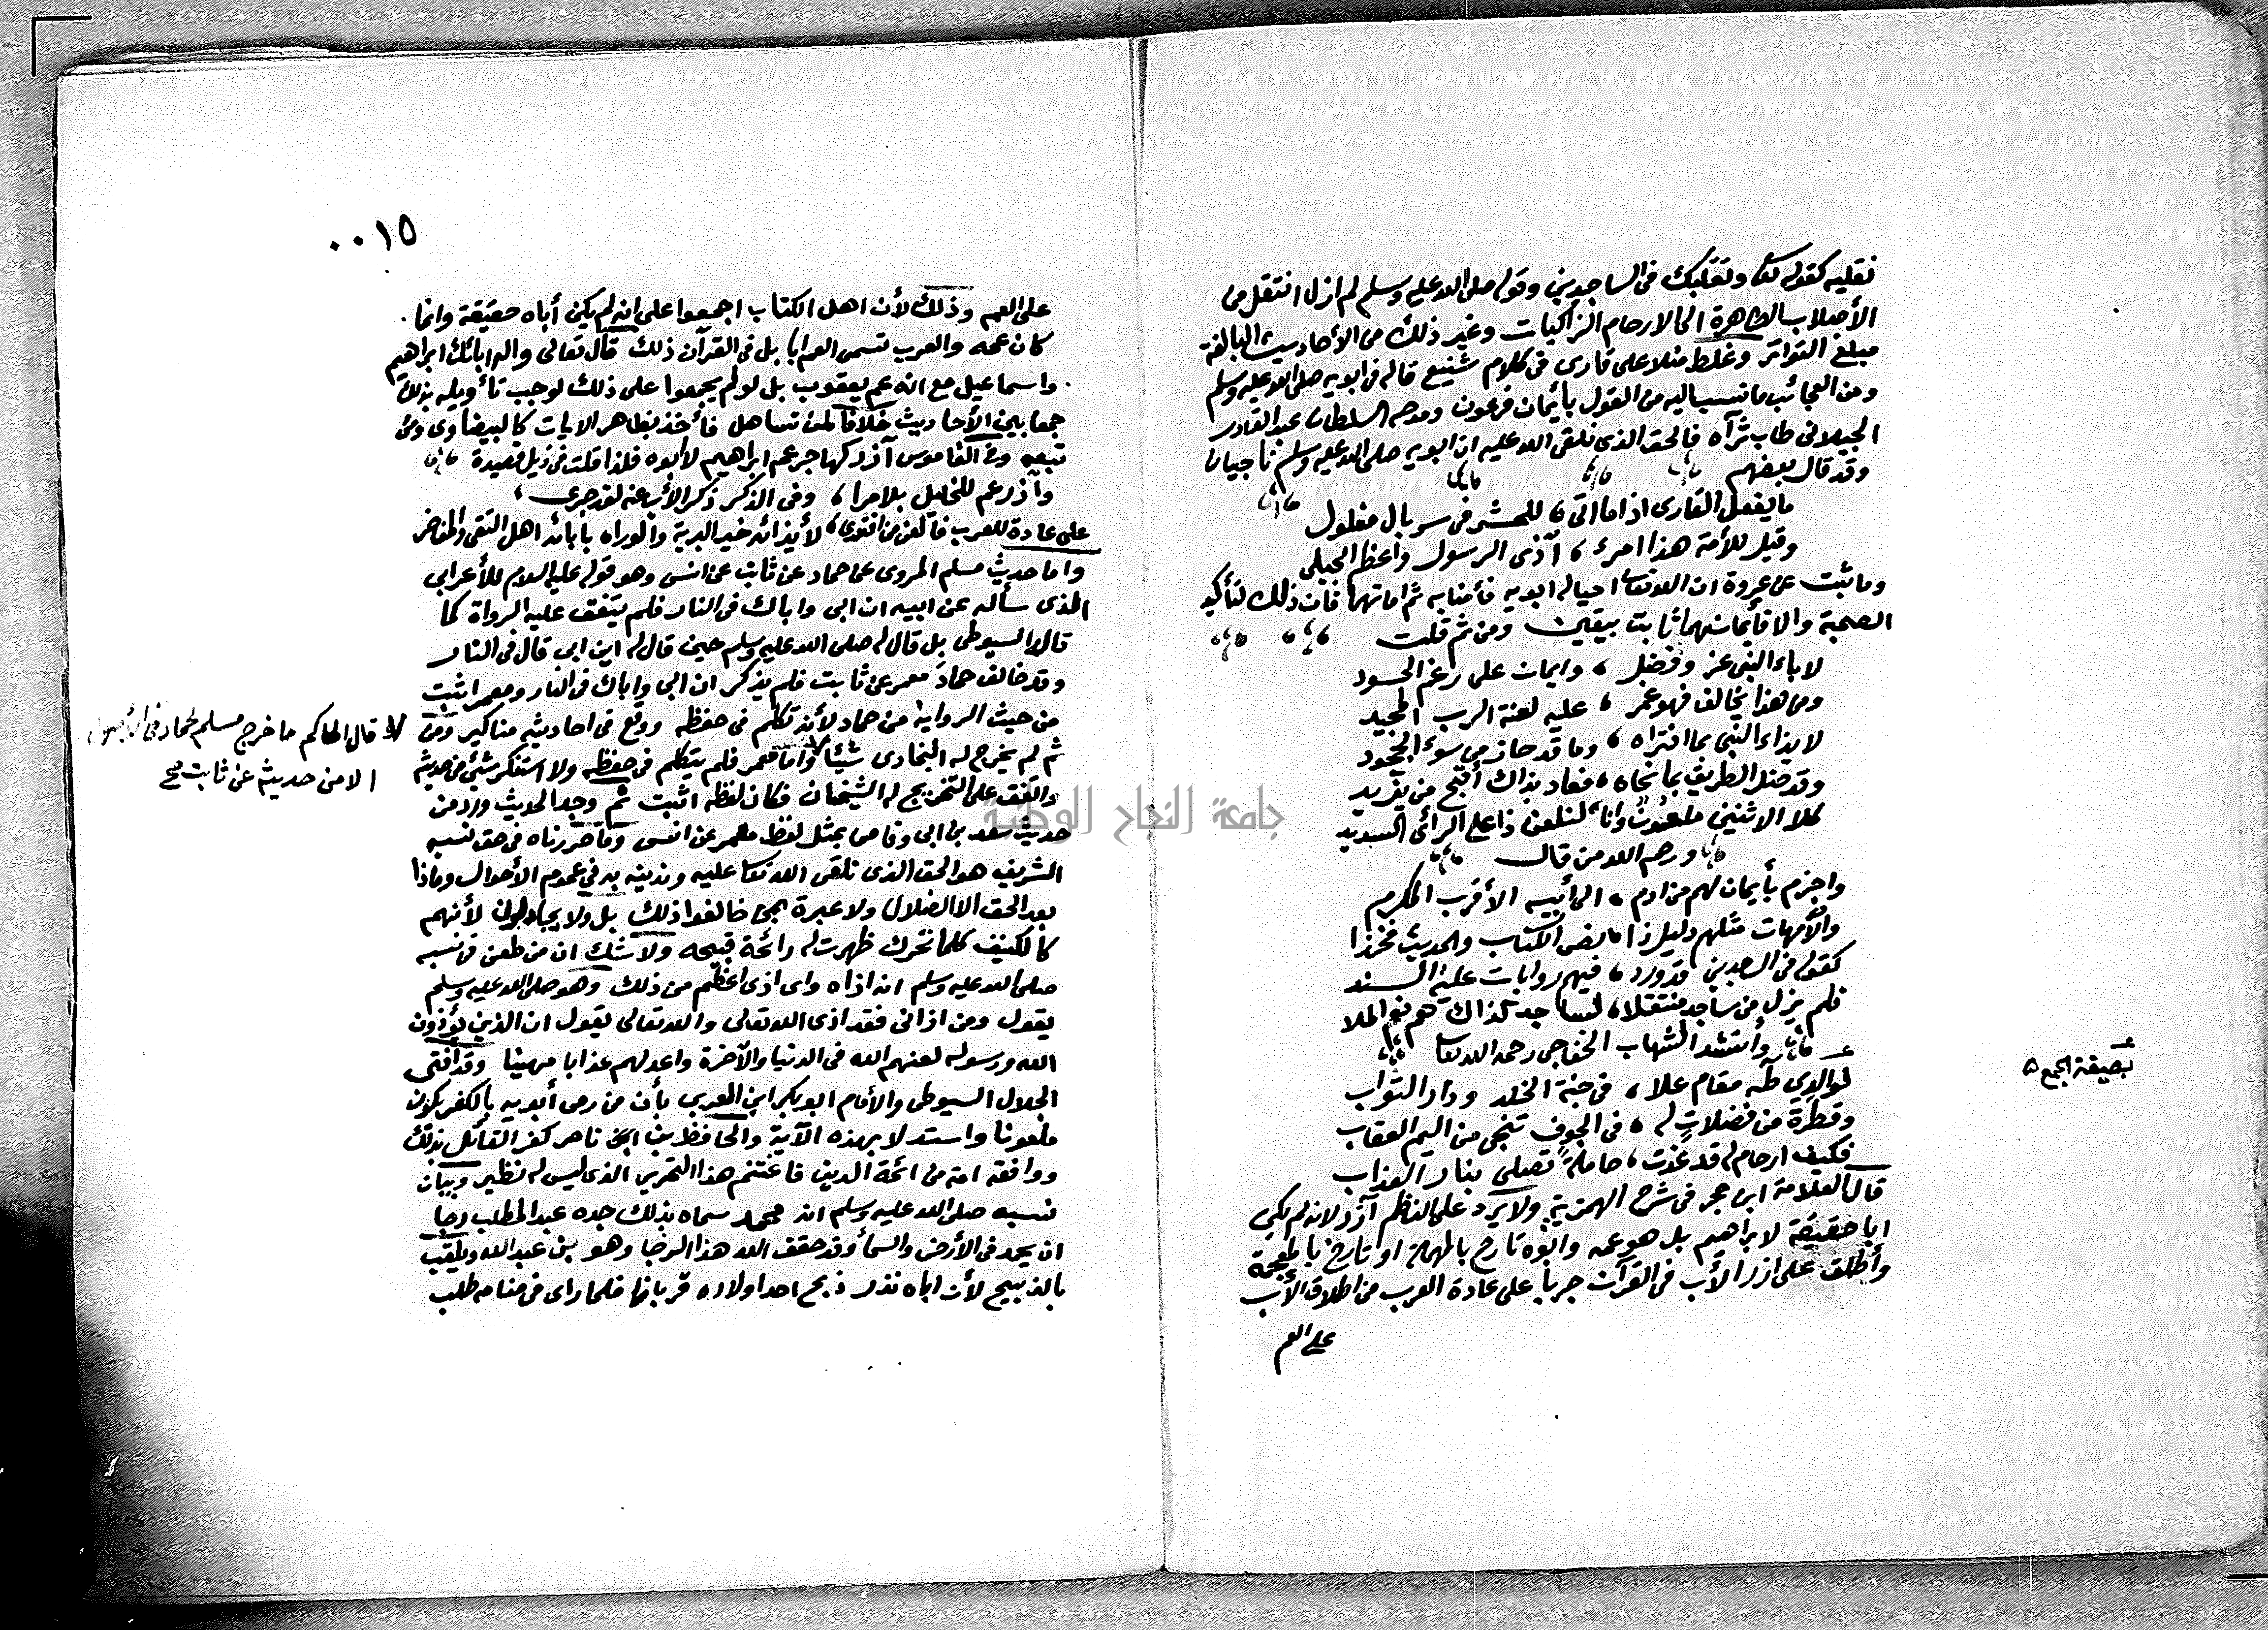 نقليه كقوله تعا وتقلبك في الساجدين وقوله صلى الله عليه وسلم لم ازل انتقل من
الأصلاب الطاهرة الى الارحام الزاكيات وغير ذلك من الأحاديث البالغة
مبلغ التواتر وغلط منلا على قارى في كلام شنيع قاله في ابويه صلى الله عليه وسلم
ومن العجائب ما نسب اليه من القول بأيمان فرعون ومدحه السلطان عبد القادر
الجيلاني طاب ثرآه فالحق الذي نلقى الله عليه ان ابويه صلى الله عليه وسلم ناجيان
وقد قال بعضهم
ما يفعل القارى اذا ما اتى ، للحشر في سربال مغلول
وقيل للأمة هذا امرء ، آذى الرسول واعظ الجيلى
وما ثبت عن عروة ان الله تعا احيا له ابويه فأمنا به ثم اماتهما فان ذلك لتأكيد
الصحبة والا فأيمانهما ثابت بيقين ومن ثم قلت
لاباء النبي عز وفضل ، وايمان على رغم الحسود
ومن هذا يخالف فهو غمر ، عليه لعنة الرب المجيد
لايذاء النبي بما افتراه ، وما قد حاز من سوء الجحود
وقد ضل الطريق بما نحاه ، فعاد بذاك أقبح من يزيد
كلا الاثنين ملعون وانا ، لنلعن ذا على الرأى السديد
ورحم الله من قال
واجزم بأيمان لهم من ادم ، الى أبيه الأقرب المكرم
والأمهات مثلهم دليل ذا ، نص الكتاب والحديث فخذا
كقوله في الساجدين قد ورد ، فيهم روايات علية السند
فلم يزل من ساجد منتقلا ، لساجد كذاك هم نعم الملا
وأنشد الشهاب الخفاجي رحمه الله تعا
لوالدي طه مقام علا ، في جنة الخلد ودار الثواب
وقطرة من فضلات له ، في الجوف تنجي من اليم العقاب
فكيف ارحام له قد غدت ، حاملة تصلى بنار العذاب
قال العلامة ابن حجر في شرح الهمزية ولا يرد على الناظم آزر لانه لم يكن
ابا حقيقة لابراهيم بل هو عمه وابوه تارح بالمهملة او تارخ بالمعجمة
وأطلق على ازر الأب في القرآن جريا على عادة العرب من اطلاق الأب
على العم
بصيغة الجمع
٠٠١٥
على العم وذلك لأن اهل الكتاب اجمعوا على انه لم يكن أباه حقيقة وانما
كان عمه والعرب تسمى العم ابا بل في القرآن ذلك قال تعالى واله ابائك ابراهيم
واسماعيل مع انه عم يعقوب بل لو لم يجمعوا على ذلك لوجب تأويله بذلك
جمعا بين الأحاديث خلافا لمن تساهل فأخذ بظاهر الايات كالبيضاوى ومن
تبعه وفى القاموس آزر كهاجر عم ابراهيم لا أبوه فلذا قلت في ذيل قصيدة
وآزر عم للخليل بلا مرا ، وفى الذكر ذكر الأب عنه لقد جرى ،
على عادة للعرب فالعن من افترى ، لأيذائه خير البرية والوراه بابائه اهل التقى والمفاخر
واما حديث مسلم المروى عن حماد عن ثابت عن انس وهو قوله عليه السلام للأعرابي
الذى سأله عن ابيه ان ابى واباك في النار فلم يتفق عليه الرواة كما
قال السيوطى بل قال له صلى الله عليه وسلم حين قال له اين ابى قال في النار
وقد خالف حماد معمر عن ثابت فلم يذكر ان ابى واباك في النار ومعمر اثبت
من حيث الرواية من حماد لأنه تكلم في حفظه ووقع في احاديثه مناكير ومن
ثم لم يخرج له البخارى شيئا واما معمر فلم يتكلم في حفظه ولا استنكر شئ من حديثه
واتفق على التخريج له الشيخان فكان لفظه اثبت ثم وجد الحديث ورد من
حديث سعد بن ابى وقاص بمثل لفظ معمر عن انس وما حررناه في حق نسبه
الشريف هو الحق الذى نلقى الله تعا عليه وندينه به في عموم الأحوال وماذا
بعد الحق الا الضلال ولا عبرة بمن خالفوا ذلك بل ولا يجادلون لأنهم
كالكنيف كلما تحرك ظهرت له رائحة قبيحه ولا شك ان من طعن في نسبه
صلى الله عليه وسلم انه اذاه واى اذى اعظم من ذلك وهو صلى الله عليه وسلم
يقول ومن اذانى فقد اذى الله تعالى والله تعالى يقول ان الذين يؤذون
الله ورسوله لعنهم الله في الدنيا والآخرة واعد لهم عذابا مهينا وقد افتى
الجلال السيوطى والأمام ابو بكر ابن العربى بأن من رمى أبويه بالكفر يكون
ملعونا واستدلا بهذه الآية والحافظ بن ناصر كفر القائل بذلك
ووافقه امة من ائمة الدين فاغتنم هذا التحرير الذى ليس له نظير وبيان
نسبه صلى الله عليه وسلم انه محمد سماه بذلك جده عبد المطلب رجا
ان يحمد في الأرض والسمأ وقد حقق الله هذا الرجا وهو بن عبد الله ويلقب
بالذبيح لأن اباه نذر ذبح احد اولاده قربانا فلما راى في منامه طلب
قال الحاكم ما خرج مسلم لحماد في الأصول
الا من حديثه عن ثابت صح
جامعة النجاح الوطنية